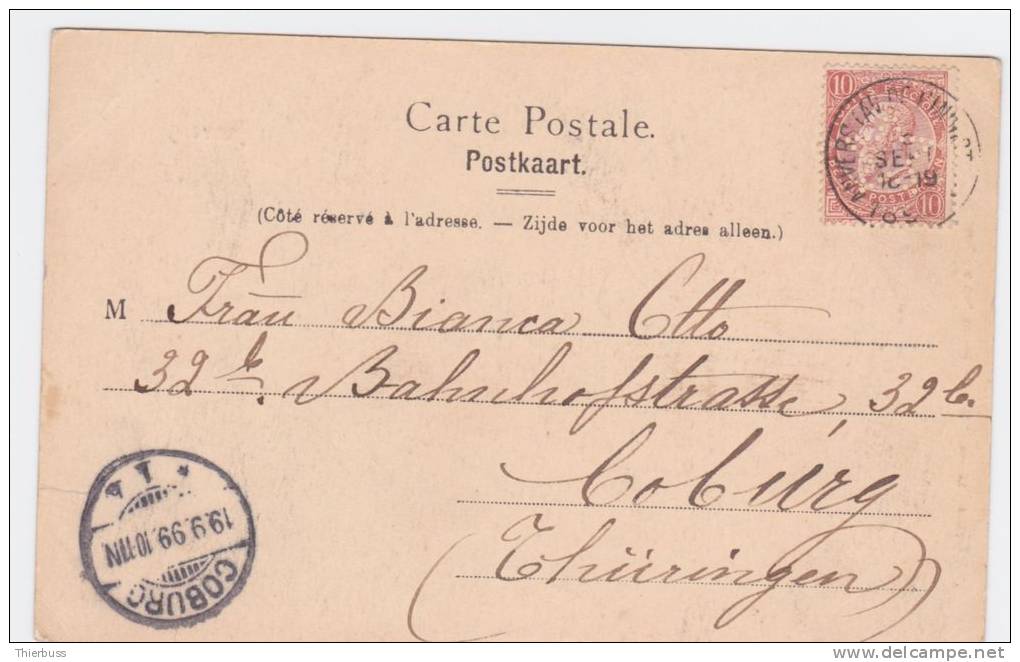 10
10
POST
ANVERS
SEPT
Carte Postale.
Postkaart.
(Côté réservé à l'adresse. — Zijde voor het adres alleen.)
M Frau Bianca Otto
32 b. Bahnhofstrasse, 32 b.
Coburg
(Thüringen)
1
19.9.99.10-11N
COBURG
Thierbuss
www.delcampe.net